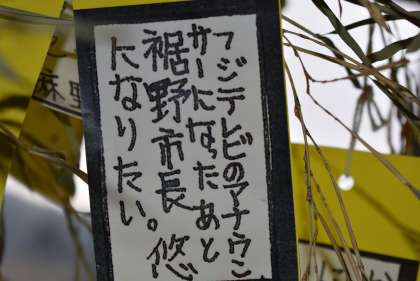 フジテレビのアナウン
サーになったあと
裾野市長 悠
になりたい。
麻里